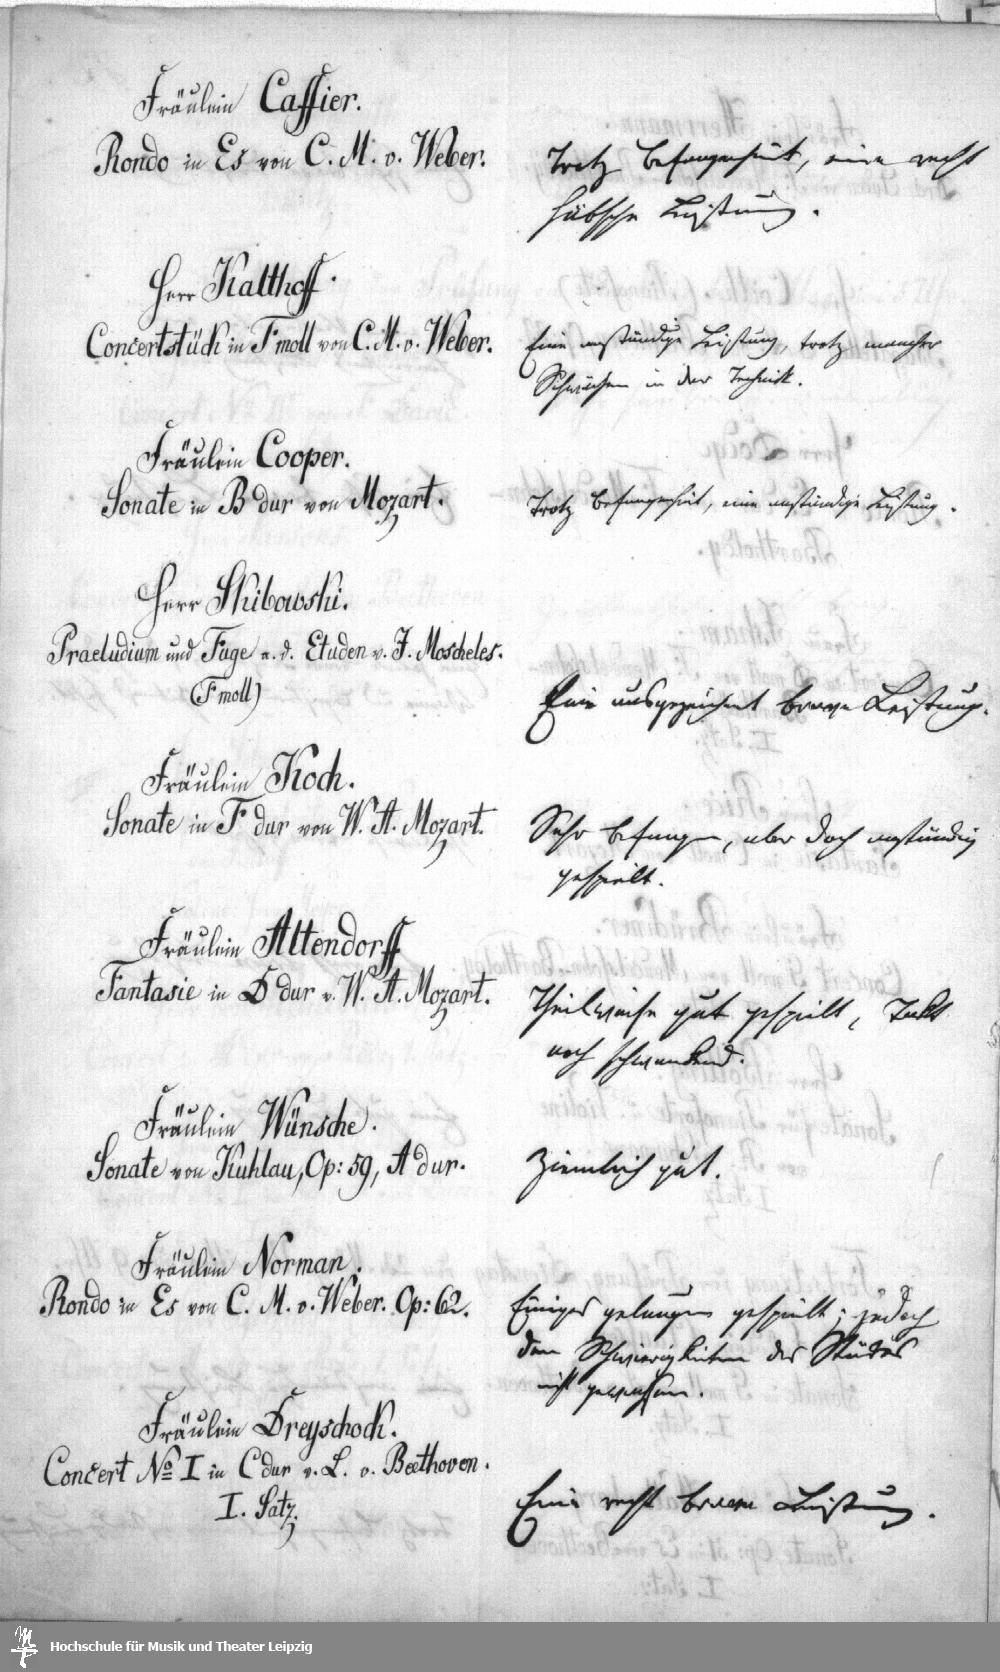 Fräulein Caffier.
Rondo in Es von C. M. v. Weber.
Trotz Befangenheit, eine recht
hübsche Leistung.
Herr Kalthoff.
Concertstück in F moll von C. M. v. Weber.
Eine anständige Leistung, trotz mancher
Schwächen in der Technik.
Fräulein Cooper.
Sonate in B dur von Mozart.
Trotz Befangenheit, eine anständige Leistung.
Herr Skibowski.
Praeludium und Fuge a. d. Etuden v. J. Moscheles.
(F moll)
Eine ausgezeichnet brave Leistung.
Fräulein Koch.
Sonate in F dur von W. A. Mozart.
Sehr befangen, aber doch anständig
gespielt.
Fräulein Altendorff
Fantasie in D dur v. W. A. Mozart.
Theilweise gut gespielt, Takt
noch schwankend.
Fräulein Wünsche.
Sonate von Kuhlau, Op: 59, A dur.
Ziemlich gut.
Fräulein Norman.
Rondo in Es von C. M. v. Weber. Op: 62.
Einiges gelungen gespielt; jedoch
den Schwierigkeiten des Stückes
nicht gewachsen.
Fräulein Dreyschock.
Concert No I in C dur v. L. v. Beethoven.
I. Satz.
Eine recht brave Leistung.
Hochschule für Musik und Theater Leipzig